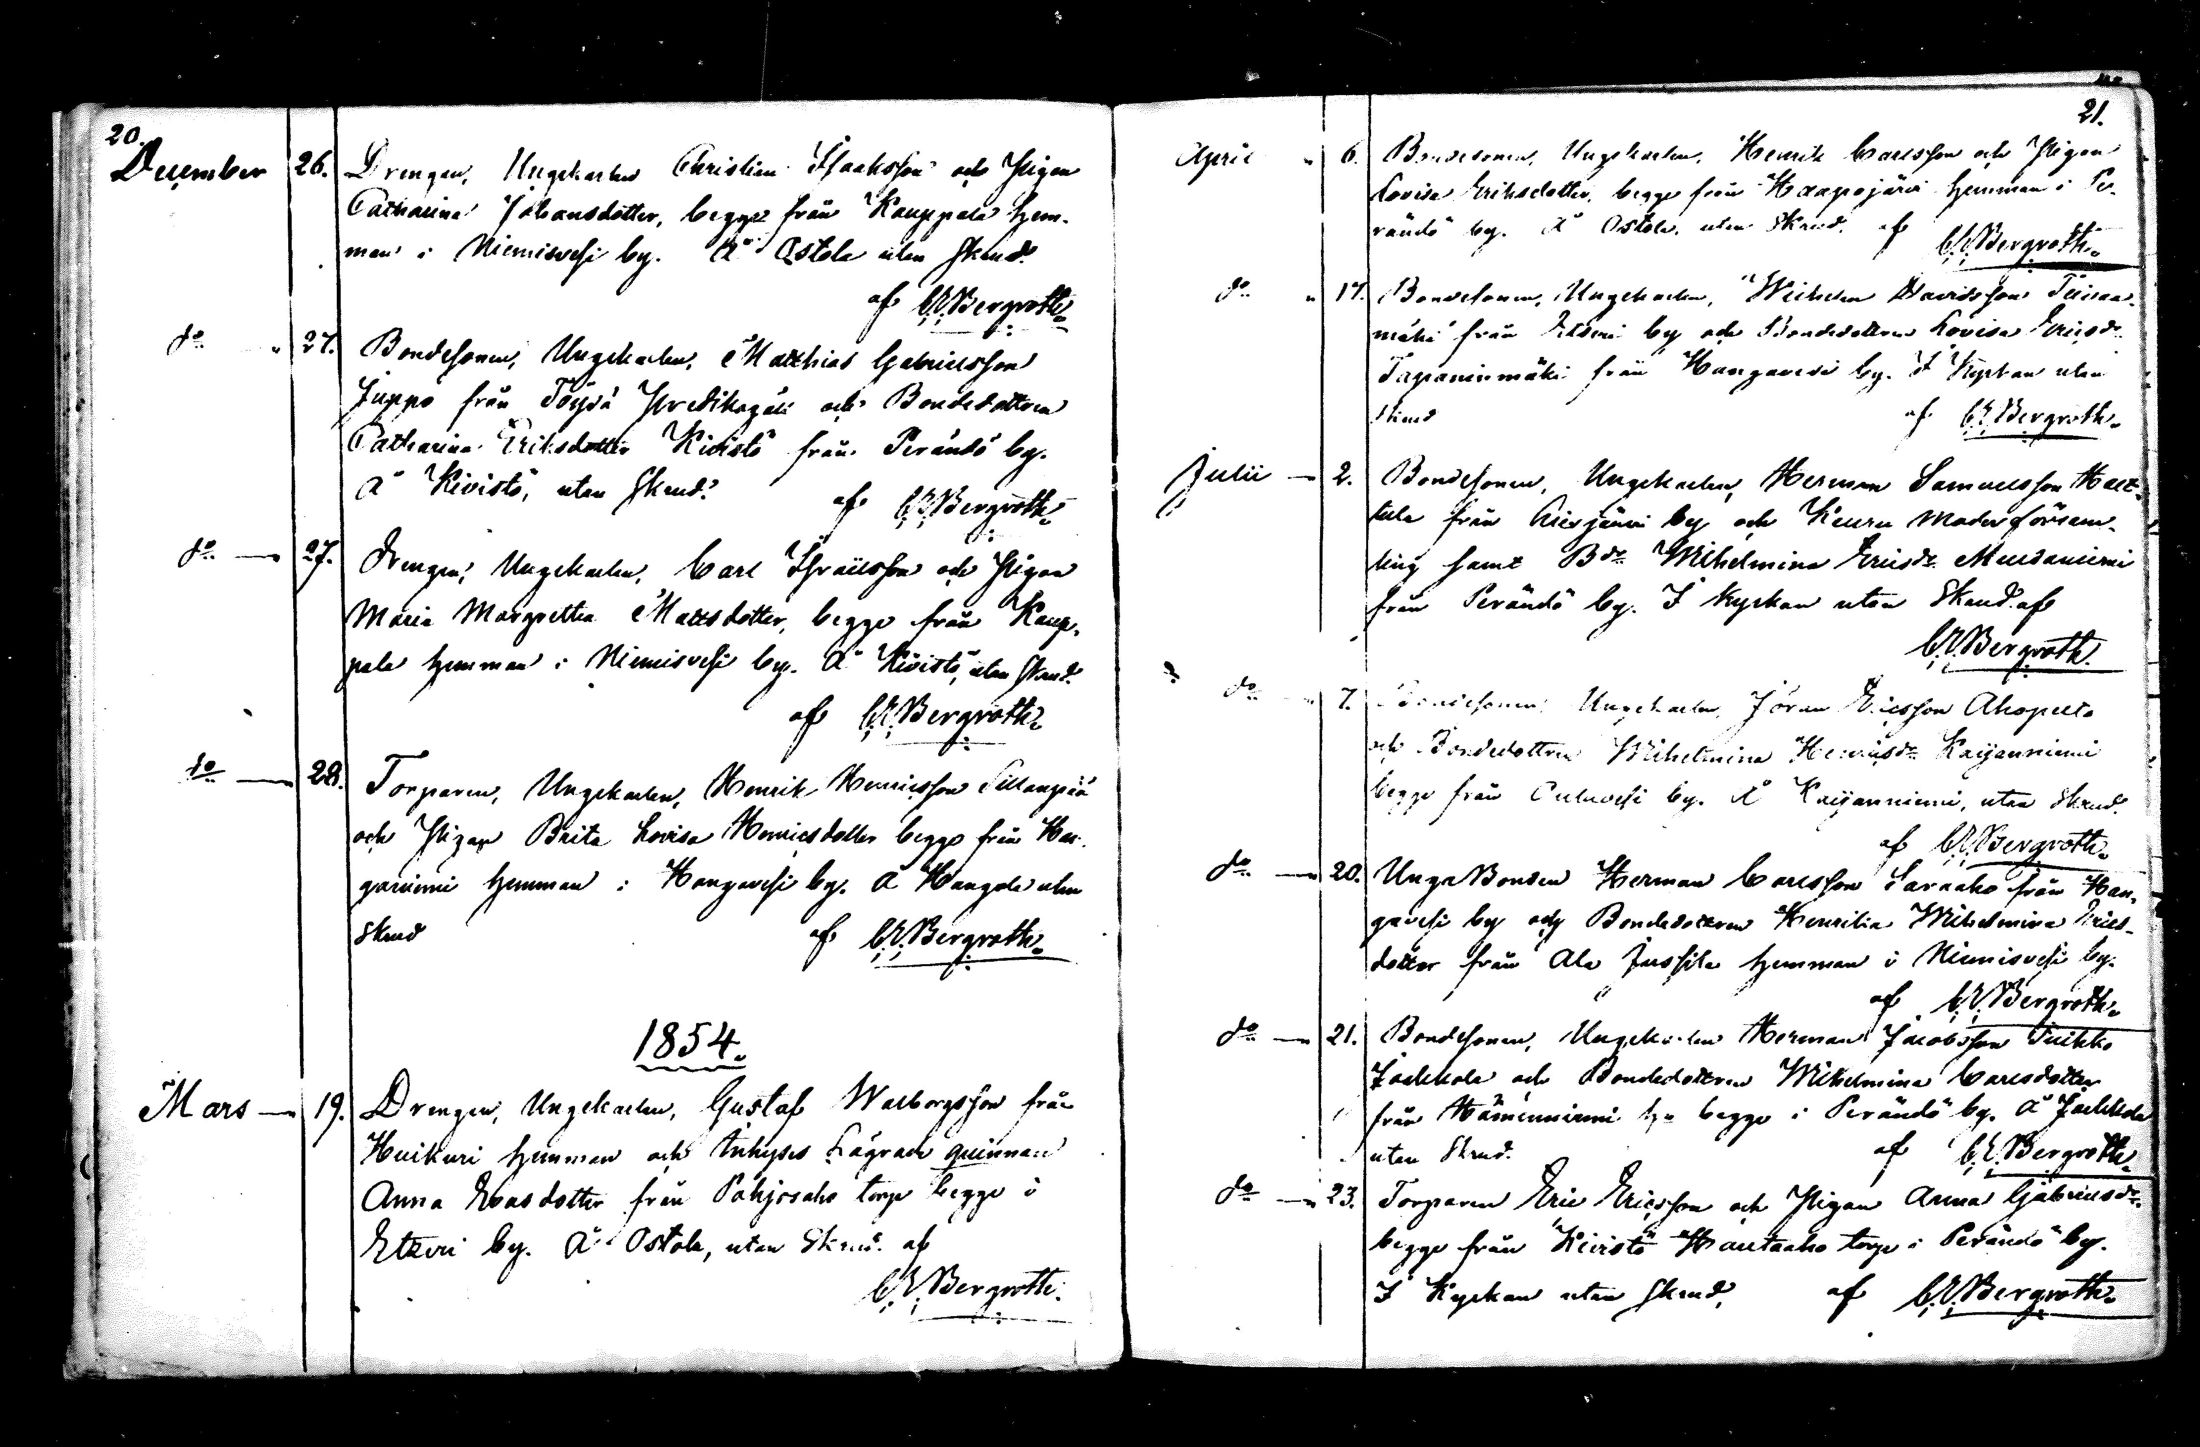 20.
December 26. Drengen, Ungekarlen Christian Isaaksson och Pigan
Catharina Johansdotter, begge från Kauppala hem-
man i Niemisvesi by. Å Ostola utan skrud.
af C.E. Bergroth.
do " 27. Bondesonen, Ungekarlen, Matthias Gabrielsson
Juppo från Töysä Predikogäll och Bondedottren
Catharina Eriksdotter Kivistö från Perändö by.
Å Kivistö, utan skrud.
af C.E. Bergroth.
do — 27. Drengen, Ungekarlen, Carl Israelsson och Pigan
Maria Margretha Mattsdotter, begge från Kaup-
pala hemman i Niemisvesi by. Å Kivistö, utan skrud.
af C.E. Bergroth.
do — 28. Torparen, Ungekarlen, Henrik Henricsson Sillanpää
och Pigan Brita Lovisa Henricsdotter begge från Han-
ganiemi hemman i Hangavesi by. Å Hangola utan
skrud af C.E. Bergroth.
1854.
Mars — 19. Drengen, Ungekarlen, Gustaf Walborgsson från
Huikuri hemman och Inhyses Lägrade quinnan
Anna Evasdotter från Pohjosaho torp begge i
Etzeri by. Å Ostola, utan skrud. af
C.E. Bergroth.
21.
April " 6. Bondesonen, Ungekarlen, Henrik Carlsson och Pigan
Lovisa Eriksdotter, begge från Haapojärvi hemman i Pe-
rändö by. Å Ostola, utan skrud. af C.E. Bergroth.
do " 17. Bondesonen, Ungekarlen, Wilhelm Davidsson
från Etseri by och Bondedottren Lovisa Ericsdr
Tapaninmäki från Hangavesi by. I Kyrkan utan
skrud af C.E. Bergroth.
Julii — 2. Bondesonen, Ungekarlen, Herman Samuelsson Halt-
tula från by och Keuru Moderförsam-
ling samt Bdr Wilhelmina Ericsdr
från Perändö by. I kyrkan utan skrud. af
C.E. Bergroth.
do " 7. Bondesonen, Ungekarlen, Jöran Ericsson Ahopelto
och Bondedottren Wilhelmina Henricsdr Kaijanniemi
begge från by. Å Kaijanniemi, utan skrud.
af C.E. Bergroth.
do — 20. Unga Bonden Herman Carlsson Saraaho från Han-
gavesi by och Bondedottren Henrika Wilhelmina Erics-
dotter från Ala Jussila hemman i Niemisvesi by.
af C.E. Bergroth.
do — 21. Bondesonen, Ungekarlen Herman Jacobsson
Jackkola och Bondedottren Wilhelmina Carlsdotter
från Hämeenniemi hn begge i Perändö by. Å Jackkola
utan skrud. af C.E. Bergroth.
do — 23. Torparen Eric Ericsson och Pigan Anna Gabrielsdr
begge från Kivistö Hautaaho torp i Perändö by.
I Kyrkan utan skrud, af C.E. Bergroth.